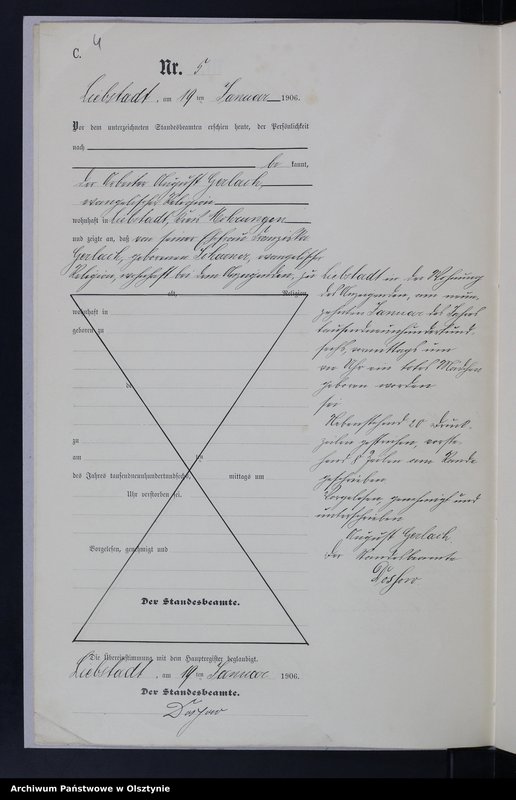 C. 4
Nr. 5
Liebstadt, am 19ten Januar 1906.
Vor dem unterzeichneten Standesbeamten erschien heute, der Persönlichkeit
nach
be kannt,
der Arbeiter August Gerlach,
evangelischer Religion
wohnhaft in Liebstadt, Kreis Mohrungen
und zeigte an, daß von seiner Ehefrau Franziska
Gerlach, geborenen evangelischer
Religion, wohnhaft bei dem Anzeigenden, zu
alt, Religion,
wohnhaft in
geboren zu
de
zu
am ten
des Jahres tausendneunhundertundsechs, mittags um
Uhr verstorben sei.
Vorgelesen, genehmigt und
Der Standesbeamte.
Liebstadt in der Wohnung
des Anzeigenden, am neun
zehnten Januar des Jahres
tausendneunhundertund
sechs, vormittags um
Uhr ein totes Mädchen
geboren worden
sei
Nebenstehend 20 Druck
zeilen gestrichen, vorste
hend 8 Zeilen am Rande
geschrieben
Vorgelesen, genehmigt und
unterschrieben
August Gerlach
Der Standesbeamte
Die Übereinstimmung mit dem Hauptregister beglaubigt.
Liebstadt, am 19ten Januar 1906.
Der Standesbeamte.
Archiwum Państwowe w Olsztynie